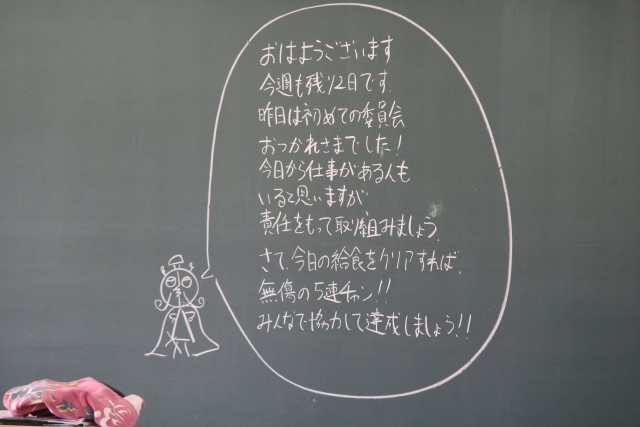 おはようございます
今週も残り2日です.
昨日は初めての委員会
おつかれさまでした!
今日から仕事がある人も
いると思いますが
責任をもって取り組みましょう.
さて、今日の給食をクリアすれば.
無傷の5連チャン!!
みんなで協力して達成しましょう!!